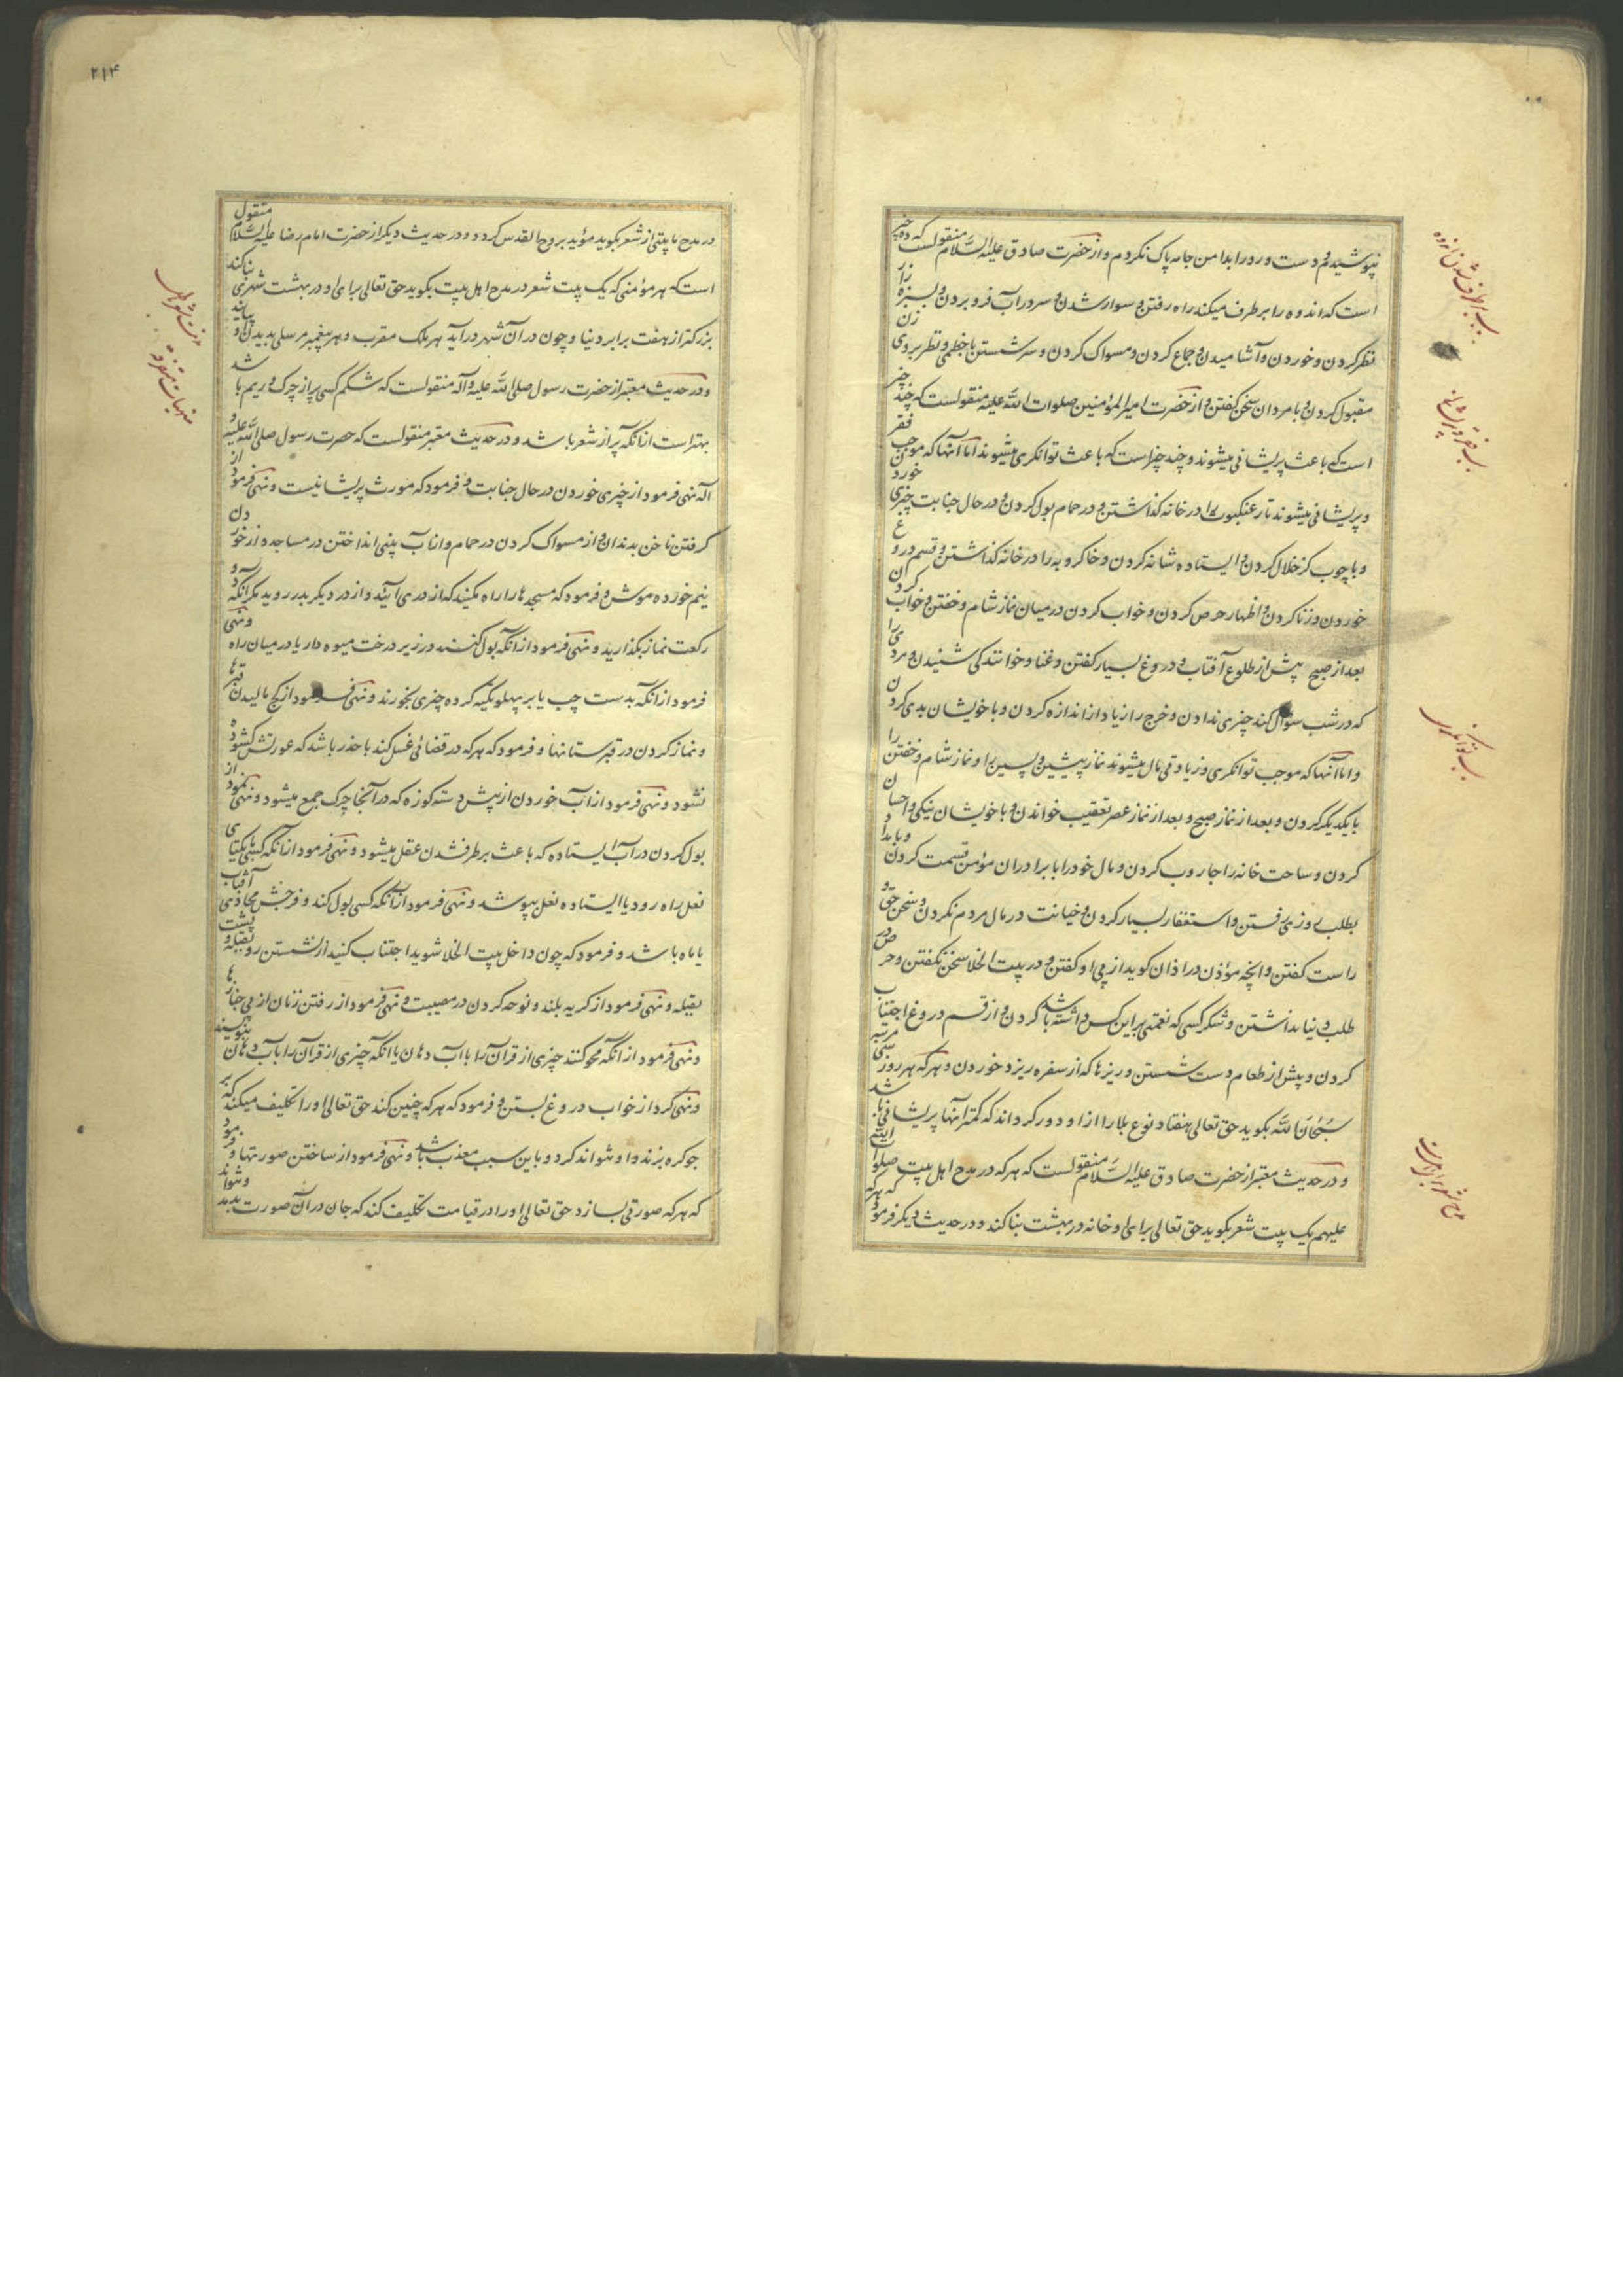 نپوشیدم و دست و رو را بدامن جامه پاک نکردم و از حضرت صادق علیه السّلام منقولست که ده چیز
است که اندوه را برطرف میکند راه رفتن و سوار شدن و سر در آب فرو بردن و بسبزه زار
نظر کردن و خوردن و آشامیدن و جماع کردن و مسواک کردن و سر شستن با خطمی و نظر بروی زن
مقبول کردن و با مردان سخن گفتن و از حضرت امیر المؤمنین صلوات اللّه علیه منقولست که چند چیز
است که باعث پریشانی میشوند و چند چیز است که باعث توانکری میشوند اما آنها که موجب فقر
و پریشانی میشوند تار عنکبوت را در خانه کذاشتن و در حمام بول کردن و در حال جنابت چیزی خوردن
و با چوب کز خلال کردن و ایستاده شانه کردن و خاکروبه را در خانه کذاشتن و قسم دروغ
خوردن و زنا کردن و اظهار حرص کردن و خواب کردن در میان نماز شام و خفتن و خواب کردن
بعد از صبح پیش از طلوع آفتاب و دروغ بسیار کفتن و غنا و خوانندکی شنیدن و مردی را
که در شب سؤال کند چیزی ندادن و خرج را زیاد از اندازه کردن و با خویشان بدی کردن
و اما آنها که موجب توانکری و زیادتی مال میشوند نماز پیشین و پسین را و نماز شام و خفتن را
با یکدیگر کردن و بعد از نماز صبح و بعد از نماز عصر تعقیب خواندن و با خویشان نیکی و احسان
کردن و ساحت خانه را جاروب کردن و مال خود را با برادران مؤمن قسمت کردن و بامداد
بطلب روزی رفتن و استغفار بسیار کردن و خیانت در مال مردم نکردن و سخن حق و
راست کفتن و آنچه مؤذن در اذان کوید از پی او کفتن و در بیت الخلا سخن نکفتن و حرص در
طلب دنیا نداشتن و شکر کسی که نعمتی بر این کس داشته باشد کردن و از قسم دروغ اجتناب
کردن و پیش از طعام دست شستن و ریزها که از سفره ریزد خوردن و هرکه هر روز سی مرتبه
سُبْحَانَ اللّه بکوید حق تعالی هفتاد نوع بلا را از او دور کرداند که کمتر آنها پریشانی باشد
و در حدیث معتبر از حضرت صادق علیه السّلام منقولست که هرکه در مدح اهل بیت صلوات اللّه
علیهم یک بیت شعر بکوید حق تعالی برای او خانه در بهشت بنا کند و در حدیث دیکر فرمود که هرکه
سبب برطرف شدن اندوه
سبب فقر و پریشانی
سبب توانکری
مدح شعر اهل بیت
۲۱۴
در مدح ما بیتی از شعر بکوید مؤید بروح القدس کردد و در حدیث دیکر از حضرت امام رضا علیه السّلام منقول
است که هر مؤمنی که یک بیت شعر در مدح اهل بیت بکوید حق تعالی برای او در بهشت شهری بنا کند
بزرکتر از هفت برابر دنیا و چون در آن شهر درآید هر ملک مقرب و هر پیغمبر مرسلی بدیدن او بیایند
و در حدیث معتبر از حضرت رسول صلی اللّه علیه و آله منقولست که شکم کسی پر از چرک و ریم باشد
بهتر است از آنکه پر از شعر باشد و در حدیث معتبر منقولست که حضرت رسول صلی اللّه علیه و
آله نهی فرمود از چیزی خوردن در حال جنابت و فرمود که مورث پریشانیست و نهی فرمود از
کرفتن ناخن بدندان و از مسواک کردن در حمام و از آب بینی انداختن در مساجد و از خوردن
نیم خورده موش و فرمود که مسجدها را راه مکنید که از دری آئید و از در دیکر بدر روید مکر آنکه دو
رکعت نماز بکذارید و نهی فرمود از آنکه بول کنند در زیر درخت میوه دار یا در میان راه و نهی
فرمود از آنکه بدست چپ یا بر پهلو تکیه کرده چیزی بخورند و نهی فرمود از کج مالیدن قبرها
و نماز کردن در قبرستانها و فرمود که هرکه در فضائی غسل کند با حذر باشد که عورتش کشوده
نشود و نهی فرمود از آب خوردن از پیش دسته کوزه که در آنجا چرک جمع میشود و نهی نمود از
بول کردن در آب ایستاده که باعث برطرف شدن عقل میشود و نهی فرمود از آنکه کسی با یکتای
نعل راه رود یا ایستاده نعل بپوشد و نهی فرمود از آنکه کسی بول کند و فرجش محاذی آفتاب
یا ماه باشد و فرمود که چون داخل بیت الخلا شوید اجتناب کنید از نشستن رو بقبله و پشت
بقبله و نهی فرمود از کریه بلند و نوحه کردن در مصیبت و نهی فرمود از رفتن زنان از پی جنازها
و نهی فرمود از آنکه محو کنند چیزی از قرآن را با آب دهان یا آنکه چیزی از قرآن را بآب دهان بنویسند
و نهی کرد از خواب دروغ بستن و فرمود که هرکه چنین کند حق تعالی او را تکلیف میکند که بر
جو کره بزند و او نتواند کرد و باین سبب معذب باشد و نهی فرمود از ساختن صورتها و فرمود
که هرکه صورتی بسازد حق تعالی او را در قیامت تکلیف کند که جان در آن صورت بدمد و نتواند
مذمت شعر باطل
منهیات متفرقه